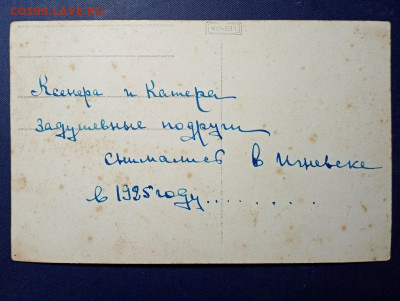 COINS.LAVE.RU
Ксенера и Катера
задушевные подруги
снимались в Игневске
в 1925 году..........